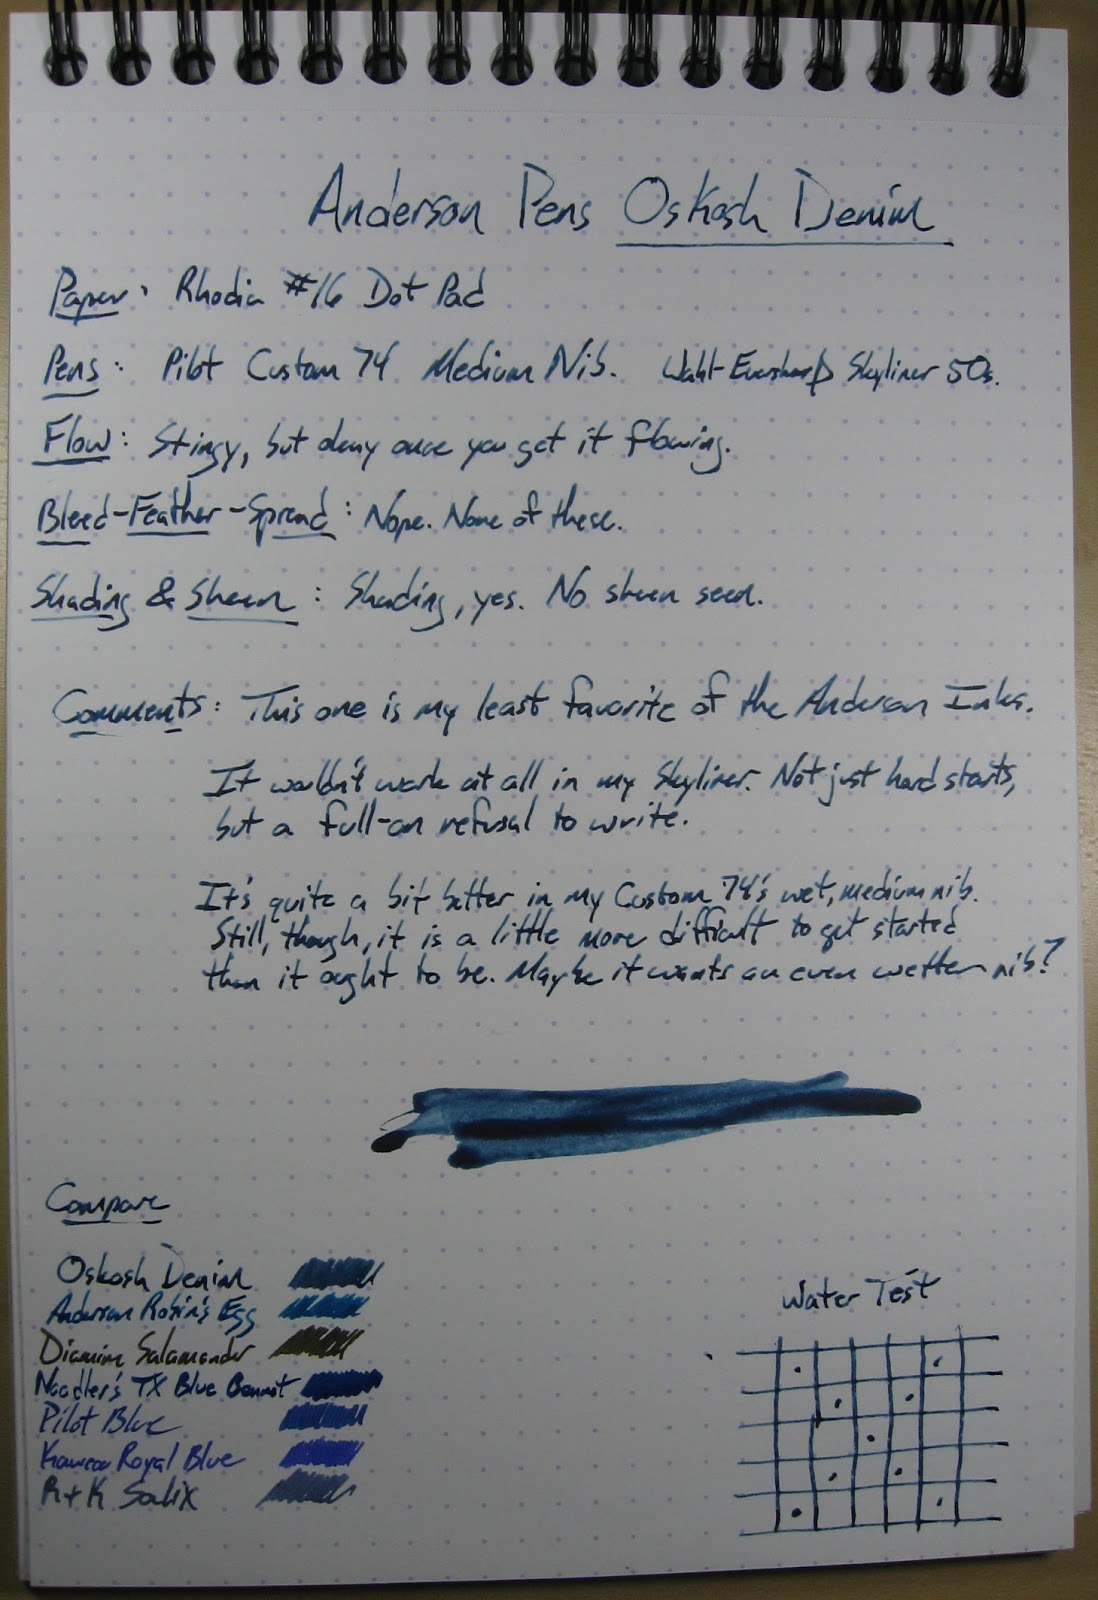 Anderson Pens Oskosh Denim
Paper: Rhodia #16 Dot Pad
Pens: Pilot Custom 74 Medium Nib. Wahl-Eversharp Skyliner 50s.
Flow: Stingy, but okay once you get it flowing.
Bleed-Feather-Spread: Nope. None of these.
Shading & Sheen: Shading, yes. No sheen seen.
Comments: This one is my least favorite of the Anderson Inks.
It wouldn't work at all in my Skyliner. Not just hard starts,
but a full-on refusal to write.
It's quite a bit better in my Custom 74's wet, medium nib.
Still, though, it is a little more difficult to get started
than it ought to be. Maybe it wants an even wetter nib?
Compare
Oskosh Denim
Anderson Robin's Egg
Diamine Salamander
Noodler's TX Blue Bonnet
Pilot Blue
Kaweco Royal Blue
R+K Salix
Water Test